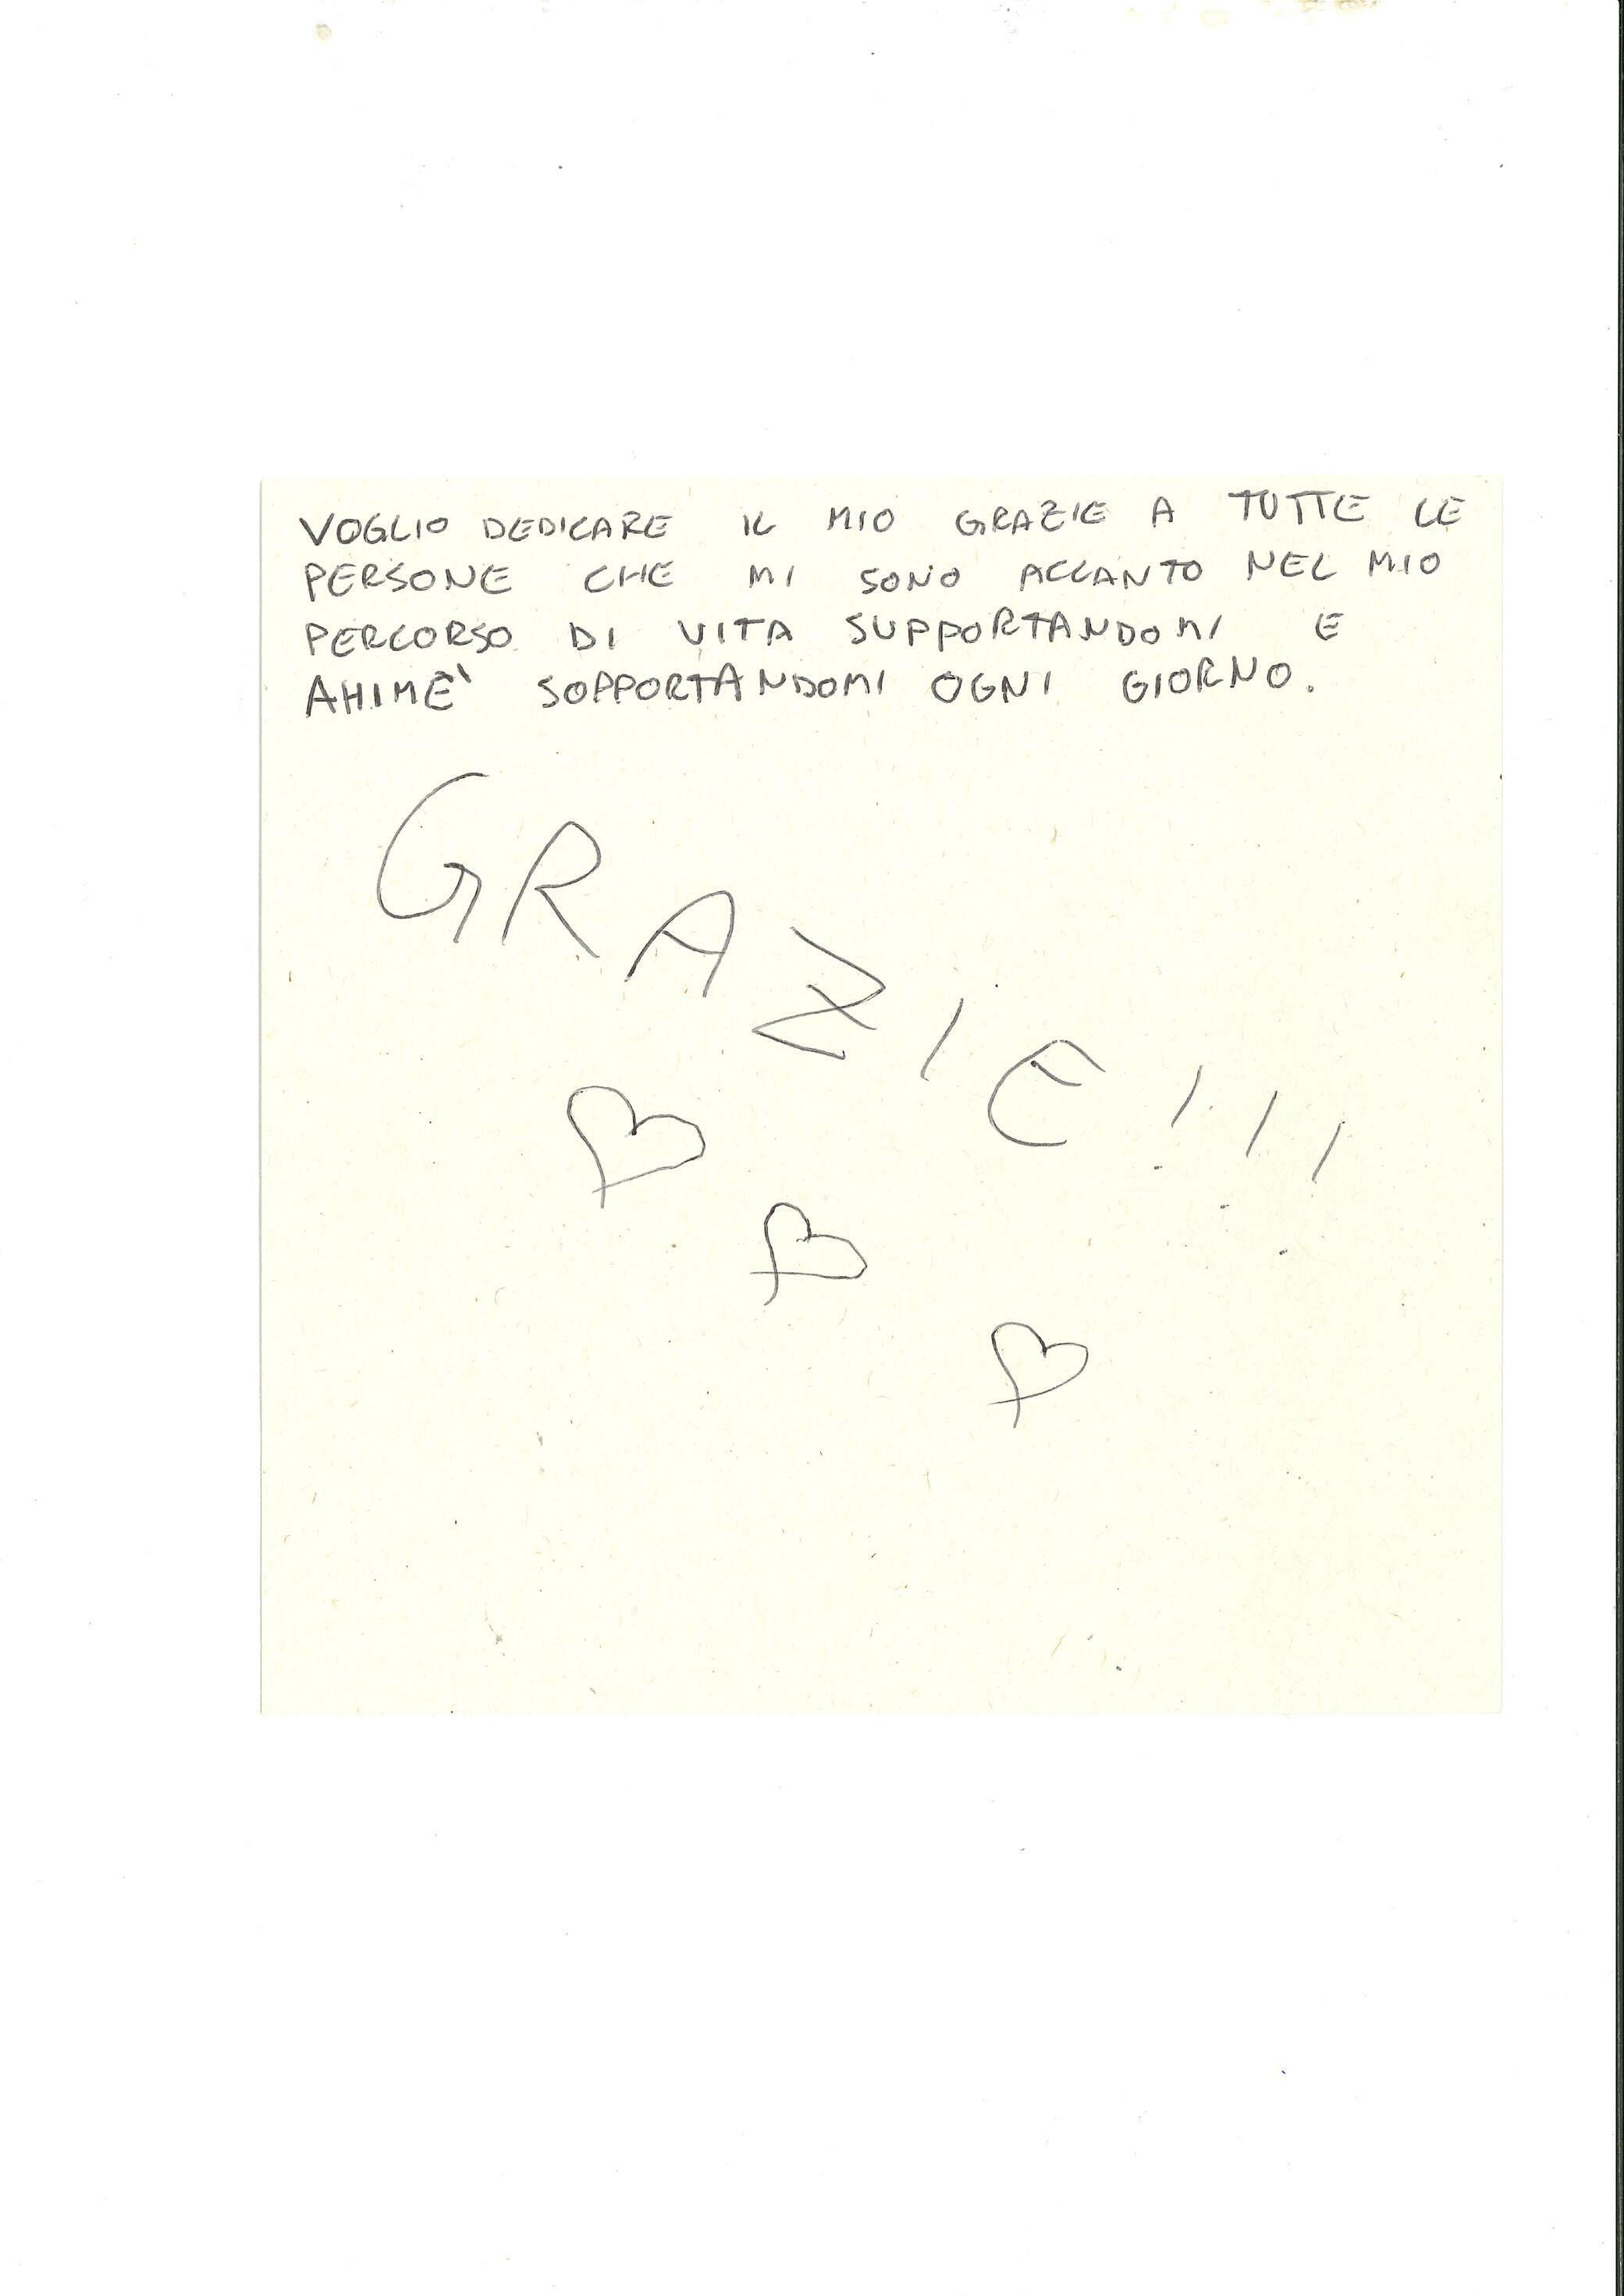 VOGLIO DEDICARE IL MIO GRAZIE A TUTTE LE
PERSONE CHE MI SONO ACCANTO NEL MIO
PERCORSO DI VITA SUPPORTANDOMI E
AHIMÈ SOPPORTANDOMI OGNI GIORNO.
GRAZIE!!!